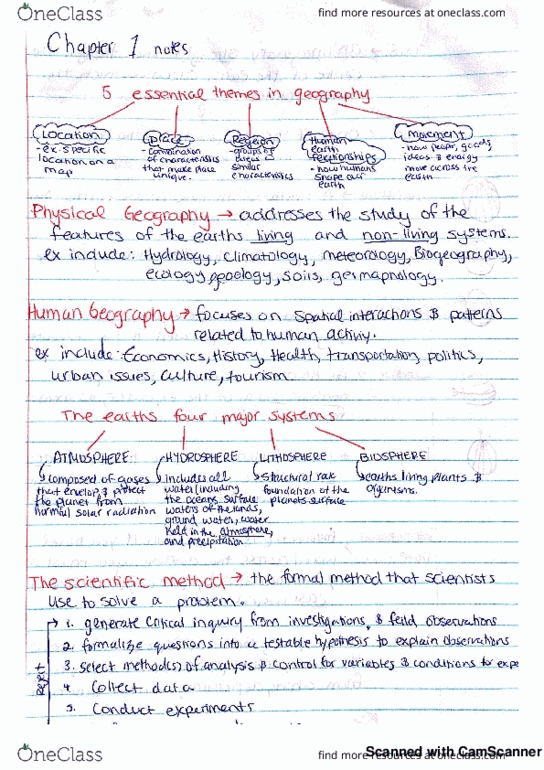 OneClass
find more resources at oneclass.com
Chapter 1 notes
5 essential themes in geography
Location
- ex. specific
location on a
map
Place
- combination
of characteristics
that make place
unique.
Region
- groups of
areas
similar
characteristics
Human
earth
relationships
- how humans
shape our
earth
Movement
- how people, goods,
ideas & energy
move across the
earth
Physical Geography → addresses the study of the
features of the earths living and non-living systems.
ex include: Hydrology, climatology, meteorology, Biogeography,
ecology, geology, soils,
Human Geography → focuses on spatial interactions & patterns
related to human activiy.
ex include: Economics, History, Health, transportation, politics,
urban issues, culture, tourism.
The earths four major systems
ATMOSPHERE
composed of gases
that envelop & protect
the planet from
harmful solar radiation
HYDROSPHERE
includes all
water (including
the oceans, surface
waters of the lands,
ground water, water
held in the atmosphere,
and precipitation
LITHOSPHERE
structural rock
foundation of the
planets surface
BIOSPHERE
earths living plants &
organisms.
The scientific method → the formal method that scientists
use to solve a problem.
1. generate critical inquiry from investigations, & feild observations
2. formalize questions into a testable hypothesis to explain observations
3. select method(s) of analysis & control for variables & conditions for expe
4. Collect data
5. Conduct experiments
Reject
OneClass
find more resources at oneclass.com
Scanned with CamScanner